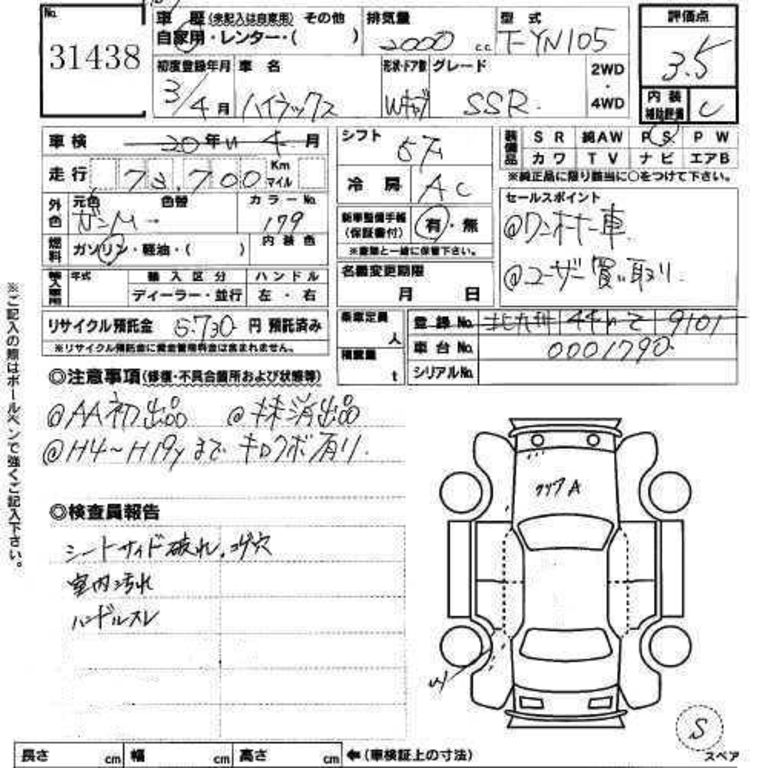 No. 31438
車歴 (未記入は自家用) その他 排気量 型式 評価点
自家用・レンター・( ) 2000 c.c. T-YN105 3.5
初度登録年月 車名 形状・ドア数 グレード 2WD 内装補助評価 C
3/4月 ハイラックス Wキャブ SSR. ・4WD
車検 20年 4月 シフト 5F 装備品 SR 純AW PS PW
カワ TV ナビ エアB
走行 73,700 Km マイル 冷房 AC ※純正品に限り該当に○をつけて下さい。
外色 元色 色替 カラーNo. セールスポイント
ガンM → 179 新車整備手帳 (保証書付) 有・無 @ワンオーナー車.
燃料 ガソリン・軽油・( ) 内装色 ※車輌と一緒に保管下さい。
輸入車用 年式 輸入区分 ハンドル 名義変更期限 @ユーザー買い取り.
ディーラー・並行 左・右 月 日
リサイクル預託金 5.730 円 預託済み 乗車定員 人 登録No. 北九州 44 て 9101
※リサイクル預託金に資金管理料金は含まれません。 積載量 t 車台No. 0001790
シリアルNo.
◎注意事項 (修復・不具合箇所および状態等)
@AA初出品 @抹消出品
@H4〜H19yまで キロクボ有り.
◎検査員報告
シートサイド破れ.コゲ穴
室内汚れ
ハンドルスレ
クリアA
W
S
スペア
長さ cm 幅 cm 高さ cm ←(車検証上の寸法)
※ご記入の際はボールペンで強くご記入下さい。